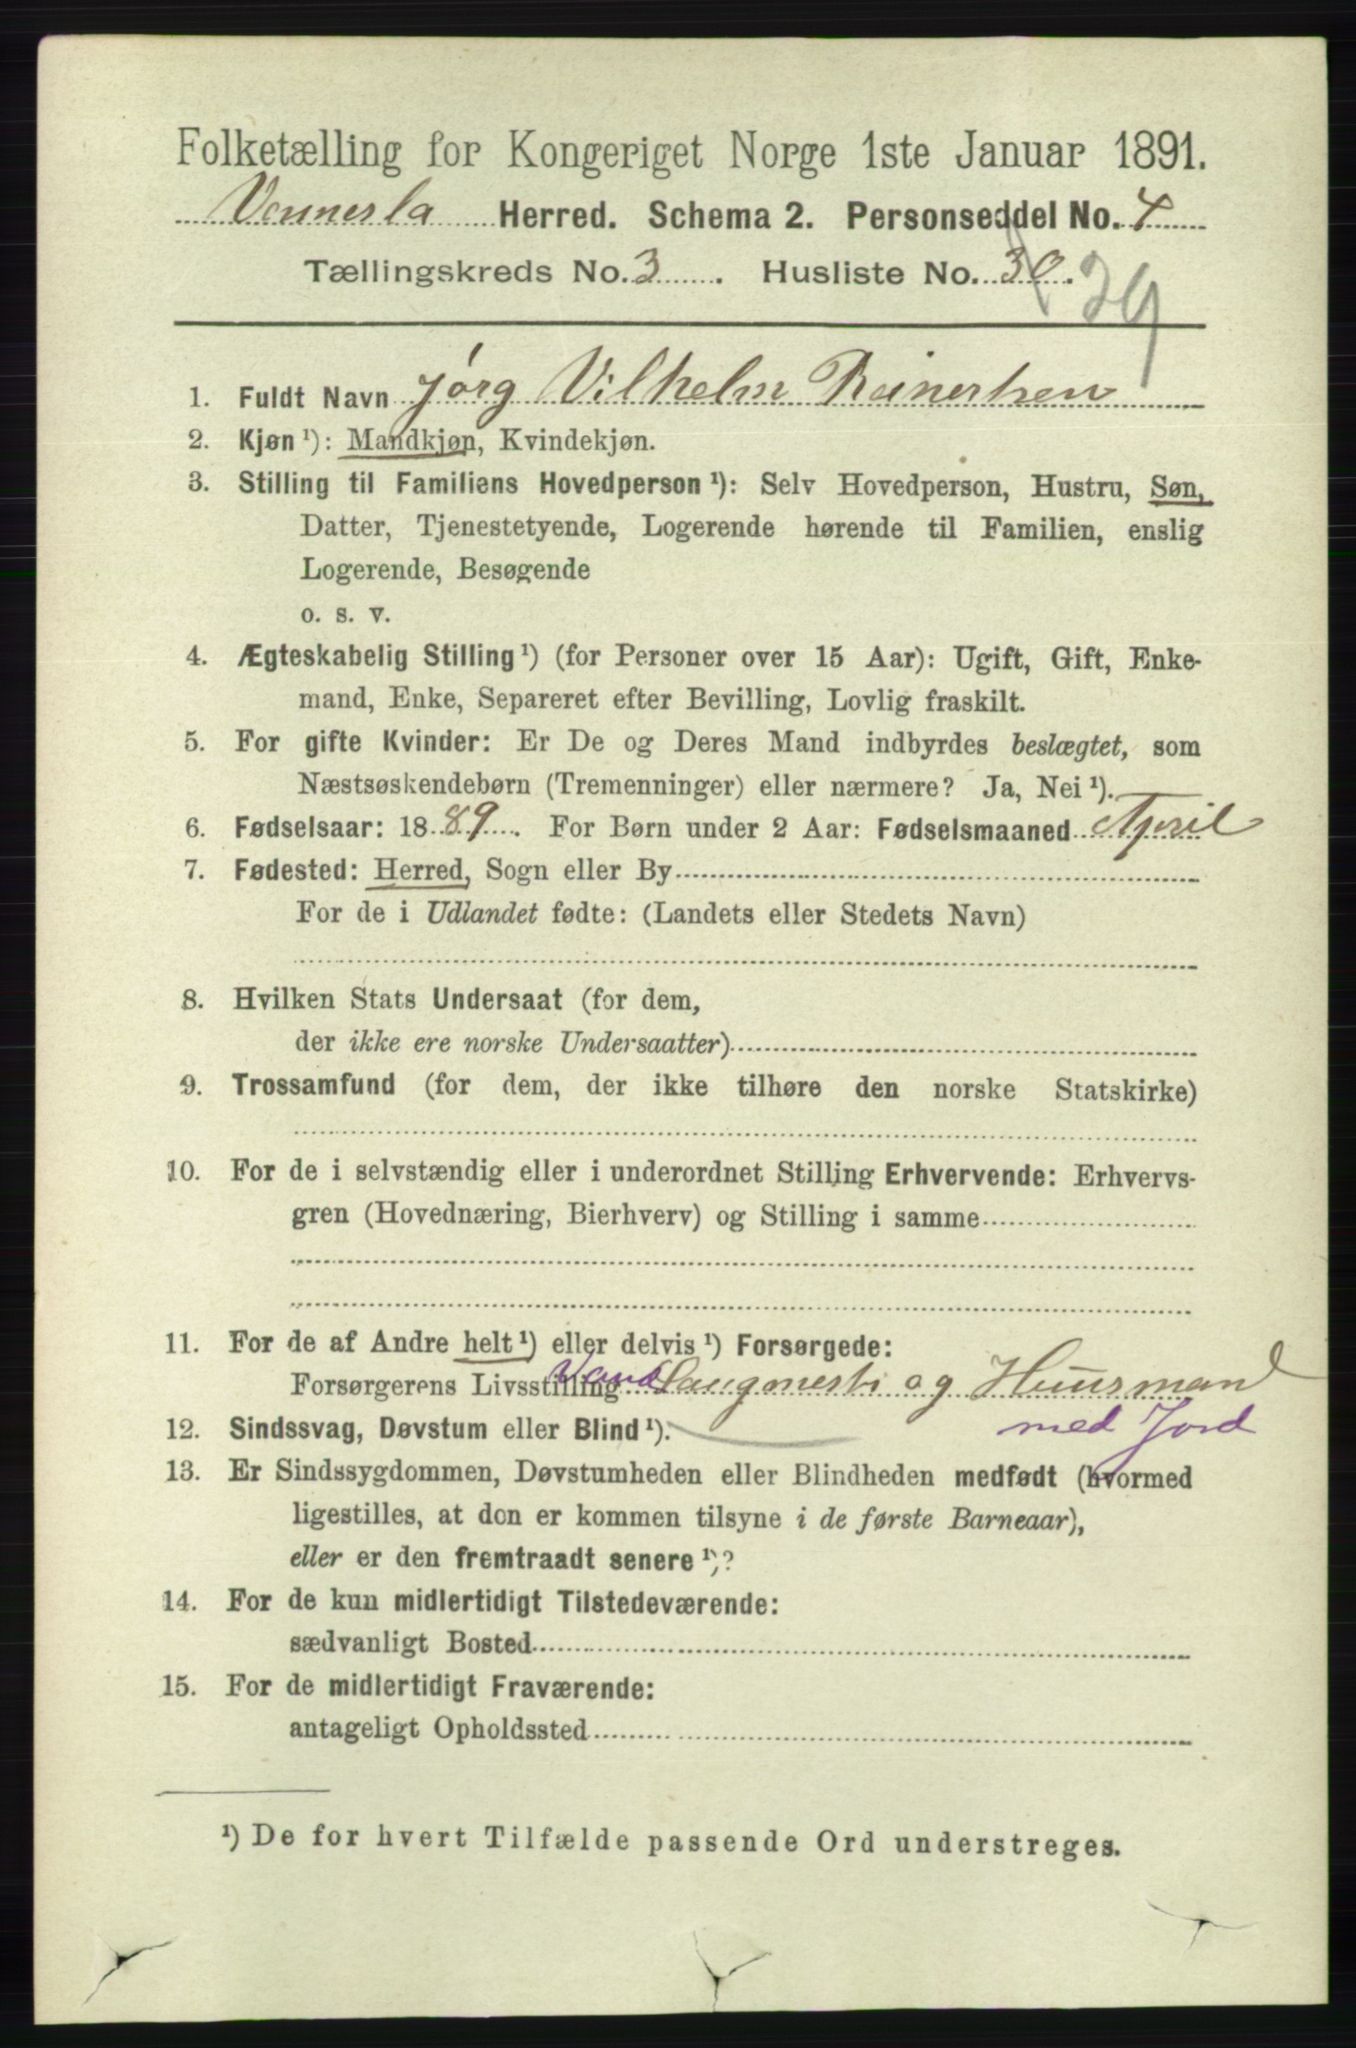 Folketælling for Kongeriget Norge 1ste Januar 1891.
Vennesla Herred. Schema 2. Personseddel No. 4
Tællingskreds No. 3. Husliste No. 30. 29
1. Fuldt Navn Jørg Vilhelm Reinertsen
2. Kjøn ¹): Mandkjøn, Kvindekjøn.
3. Stilling til Familiens Hovedperson ¹): Selv Hovedperson, Hustru, Søn,
Datter, Tjenestetyende, Logerende hørende til Familien, enslig
Logerende, Besøgende
o. s. v.
4. Ægteskabelig Stilling ¹) (for Personer over 15 Aar): Ugift, Gift, Enke-
mand, Enke, Separeret efter Bevilling, Lovlig fraskilt.
5. For gifte Kvinder: Er De og Deres Mand indbyrdes beslægtet, som
Næstsøskendebørn (Tremenninger) eller nærmere? Ja, Nei ¹).
6. Fødselsaar: 1889. For Børn under 2 Aar: Fødselsmaaned April
7. Fødested: Herred, Sogn eller By
For de i Udlandet fødte: (Landets eller Stedets Navn)
8. Hvilken Stats Undersaat (for dem,
der ikke ere norske Undersaatter)
9. Trossamfund (for dem, der ikke tilhøre den norske Statskirke)
10. For de i selvstændig eller i underordnet Stilling Erhvervende: Erhvervs-
gren (Hovednæring, Bierhverv) og Stilling i samme
11. For de af Andre helt ¹) eller delvis ¹) Forsørgede:
Forsørgerens Livsstilling Vand og Huusmand
12. Sindssvag, Døvstum eller Blind ¹). med Jord
13. Er Sindssygdommen, Døvstumheden eller Blindheden medfødt (hvormed
ligestilles, at don er kommen tilsyne i de første Barneaar),
eller er den fremtraadt senere ¹)?
14. For de kun midlertidigt Tilstedeværende:
sædvanligt Bosted
15. For de midlertidigt Fraværende:
antageligt Opholdssted
¹) De for hvert Tilfælde passende Ord understreges.